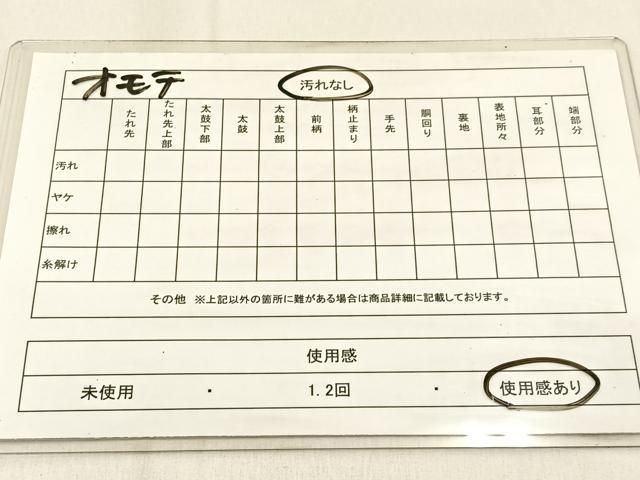 オモテ 汚れなし
たれ先 たれ先上部 太鼓下部 太鼓 太鼓上部 前柄 柄止まり 手先 胴回り 裏地 表地所々 耳部分 端部分
汚れ
ヤケ
擦れ
糸解け
その他 ※上記以外の箇所に難がある場合は商品詳細に記載しております。
使用感
未使用 ・ 1.2回 ・ 使用感あり